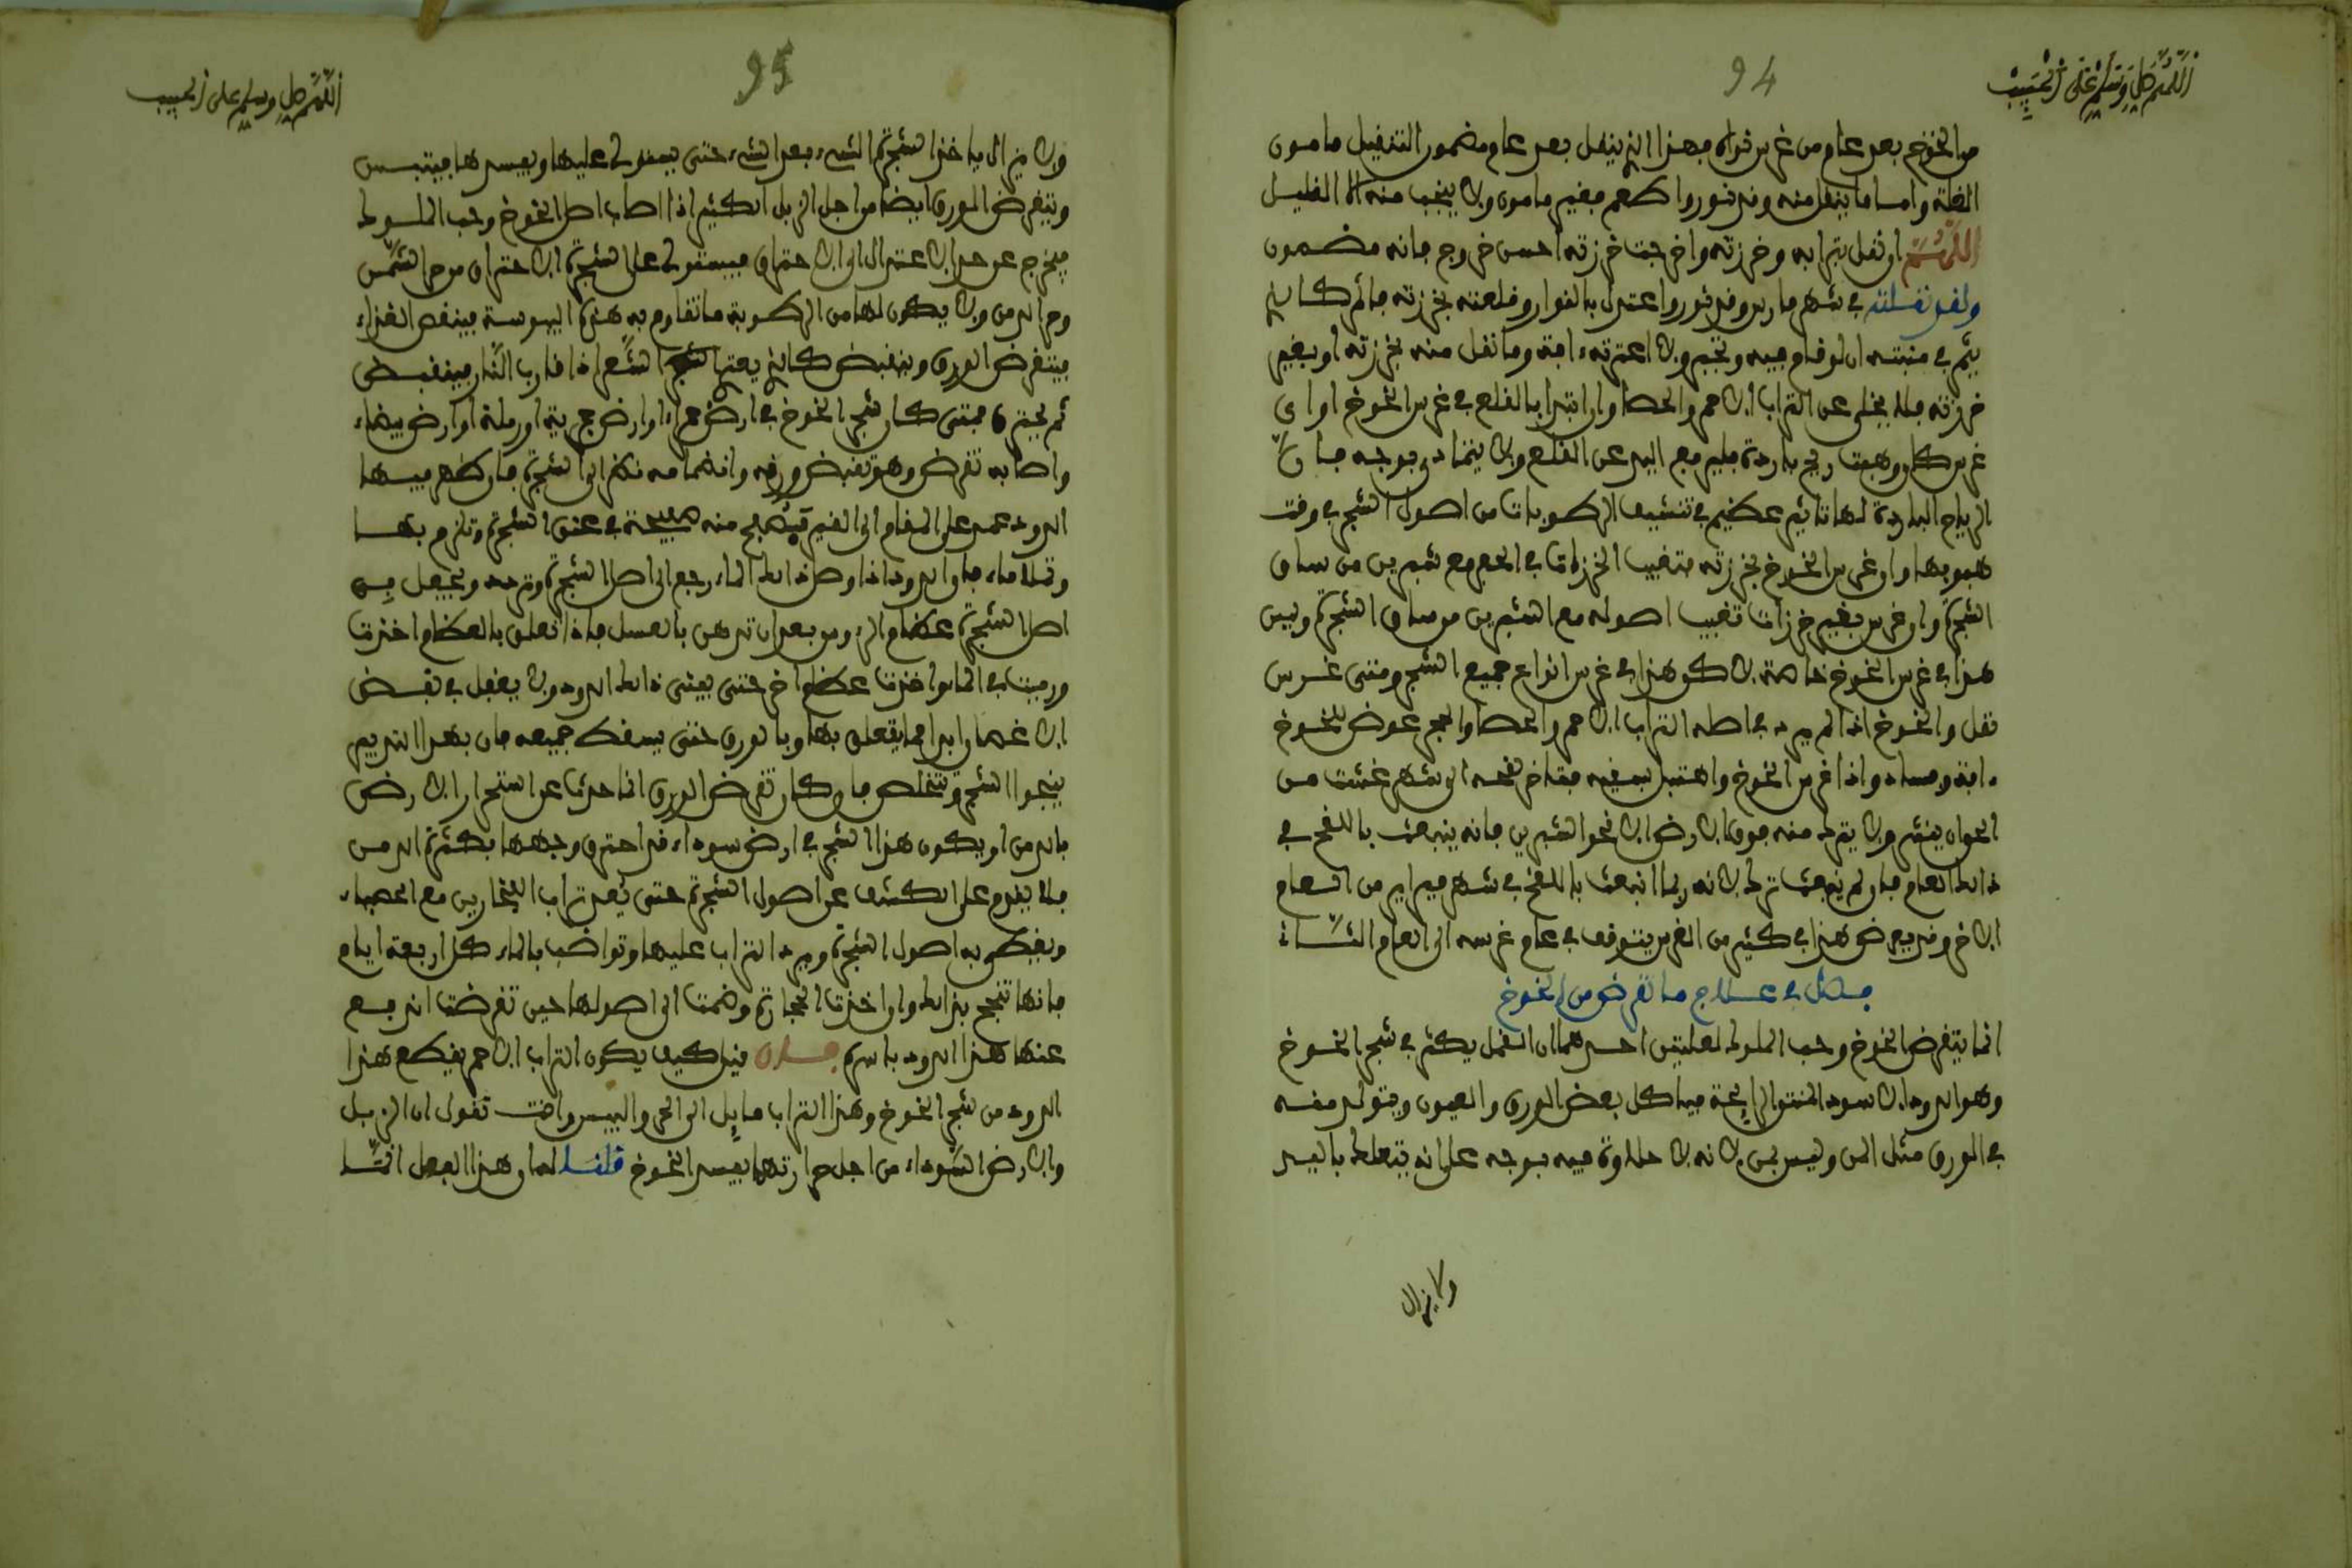 اللهم صل وسلم على الحبيب
94
من الخوخ بعد عام من غرس نواه فهذا الذي ينقل بعد عام مضمون التنفيل مامون
الغلة واما ما ينقل منه وقد نور واطعم فغير مامون ولا ينجب منه الا القليل
اللهم ان نقل بترابه وخرزته واخرجت خرزته احسن خروج فانه مضمون
ولقد نقلته في شهر مارس وقد نور واعتدل بالنوار وقلعته بخرزته فاثمر كالذي
يثمر في منبته ان لو قام فيه وتجبر ولا اعترته ءافة وما نقل منه بخرزته او بغير
خرزته فلا يخلى عن التراب الاحمر والحصا وان ابتدا بالقلع في غرس الخوخ او اى
غرس كان وهبت ريح باردة فليرفع اليد عن القلع ولا يتمادى بوجه فان
الرياح الباردة لها تاثير عظيم في تنشيف الرطوبات من اصول الشجر في وقت
هبوبها وان غرس الخوخ بخرزته فتغيب الخرزات في الحفر مع شبرين من ساق
الشجرة وان غرس بغير خرزات تغيب اصوله مع الشبرين من ساق الشجرة وليس
هذا في غرس الخوخ خاصة بل كو هذا في غرس انواع جميع الشجر ومتى غرس
نقل والخوخ اذا لم يرد في اصله التراب الاحمر والحصا والحجر عرض للخوخ
ءافة وفساد واذا غرس الخوخ واهتبل بسقيه فتاخر لقحه الى شهر غشت من
الحوان ينشر ولا يترك منه فوق الارض الا نحو الشبرين فانه ينبعث باللقح في
ذلك العام فان لم ينبعث ترك لانه ربما انبعث باللقح في شهر فبراير من العام
الاخر وقد يعرض هذا في كثير من الغرس يتوقف في عام غرسه الى العام الثاني
فصل في علاج ما تقرض من الخوخ
انما يتقرض الخوخ وحب الملوك لعلتين احدهما ان القمل يكثر في شجر الخوخ
وهو الدود الاسود المنتن الرايحة فياكل بعض الورق والعيون ويتولد منه
في الورق مثل المن وليس بمن لانه لا حلاوة فيه بوجه على انه يتعلك باليد
ولا يزال
اللهم صل وسلم على الحبيب
95
ولا يزال ياخذ الشجرة الشىء بعد الشىء حتى يستولى عليها ويفسدها فيتبس
ويتقرض الورق ايضا من اجل الزبل الكثير اذا اصاب اصل الخوخ وحب الملوك
فيخرج عن حد الاعتدال الى الاحتراق فيستولى على الشجرة الاحتراق من حر الشمس
وحر الدمن ولا يكون لها من الرطوبة ما تقاوم به هذه اليبوسة فينقص الغذاء
فيتقرض الورق وينقبض كالذي يعترى الشعر اذا قارب النار فينقبض
ثم يحترق فمتى كان شجر الخوخ في ارض حمراء او ارض حجرية او رملة او ارض بيضاء
واصابه تقرض وهو تقبض ورقه وانضمامه نظر الى الشجرة فان ظهر فيها
الدود عمد على المقام الى القير فيصلح منه صفيحة في عنق الشجرة وتلزم بها
وتملا ماء فان الدود اذا وصل ذلك الماء رجع الى اصل الشجرة وتردد ويجعل في
اصل الشجرة عظام الروس بعد ان تدهن بالعسل فاذا تعلق بالعظام اخذت
ورميت في الماء واخذت عظام اخر حتى يفنى ذلك الدود ولا يغفل في نفض
الاغصان ابدا مما يتعلق بها وبالورق حتى يسقط جميعه فان بهذا التدبير
ينجوا الشجر ويتخلص فان كان تقرض الورق انما حدث عن استحرار الارض
بالدمن او يكون هذا الشجر في ارض سوداء قد احترق وجهها بكثرة الدمن
فلا يقدم على الكشف عن اصول الشجرة حتى يعد تراب الفخارين مع الحصباء
ويغطى به اصول الشجرة ويرد التراب عليها وتواضب بالماء كل اربعة ايام
فانها تنجح بذلك وان اخذت الحجارة وضمت الى اصولها حين تقرضت اندفع
عنها هذا الدود باسره فان قيل كيف يكون التراب الاحمر يقطع هذا
الدود من شجر الخوخ وهذا التراب مايل الى الحر واليبس وانت تقول ان الزبل
والارض السوداء من اجل حرارتهما يفسد الخوخ قلنا لها ان هذا الفصل انما